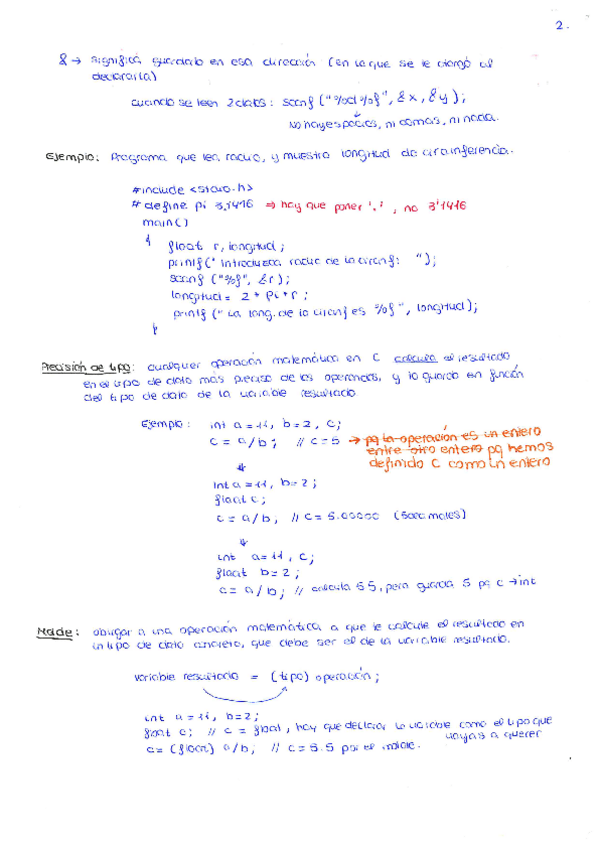 2.
& → significa guardarlo en esa dirección (en la que se le otorgó al
declararla)
cuando se leen 2 datos: scanf ("%d%f", &x, &y);
No hay espacios, ni comas, ni nada.
Ejemplo: Programa que lea radio, y muestra longitud de circunferencia.
#include <stdio.h>
# define pi 3.1416 ⇒ hay que poner '.', no 3'1416
main()
{
float r, longitud;
printf(" Introduzca radio de la circunf: ");
scanf ("%f", &r);
longitud = 2 * pi * r;
printf (" La long. de la circunf es %f", longitud);
}
Precisión de tipo: cualquier operación matemática en C calcula el resultado
en el tipo de dato más preciso de los operandos, y lo guarda en función
del tipo de dato de la variable resultado
Ejemplo: int a = 11, b = 2, c;
c = a/b; // c = 5 → pq la operación es un entero
entre otro entero pq hemos
definido C como un entero
↓
int a = 11, b = 2;
float c;
c = a/b; // c = 5.00000 (5 decimales)
↓
int a = 11, c;
float b = 2;
c = a/b; // calcula 5.5, pero guarda 5 pq c → int
Molde: obligar a una operación matemática a que le calcule el resultado en
un tipo de dato concreto, que debe ser el de la variable resultado.
variable resultado = (tipo) operación;
int a = 11, b = 2;
float c; // c = float, hay que declarar la variable como el tipo que
vayas a querer
c = (float) a/b; // c = 5.5 por el molde.